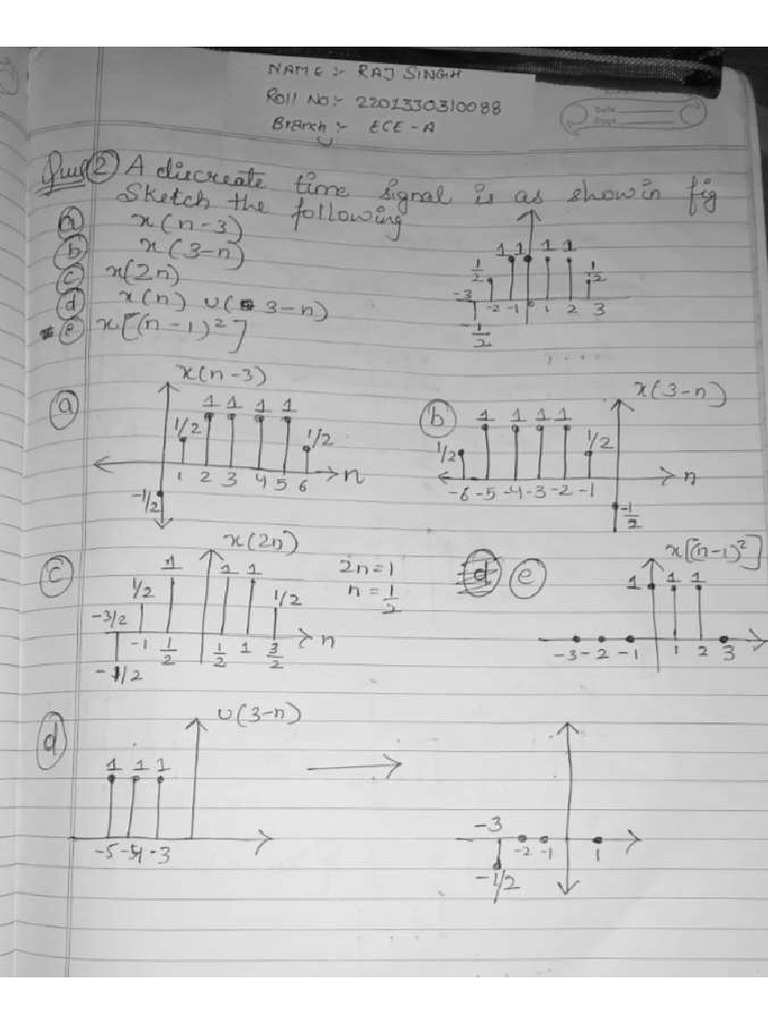 NAME :- RAJ SINGH
Roll No:- 2201330310088
Branch :- ECE - A
Ques 2) A discreate time signal is as show in fig
Sketch the following
a) x(n-3)
b) x(3-n)
c) x(2n)
d) x(n) u(3-n)
* e) x[(n-1)²]
1/2 1 1 1 1 1/2
-3 -2 -1 0 1 2 3
-1/2
a) x(n-3)
1/2 1 1 1 1 1/2
1 2 3 4 5 6 n
-1/2
b) x(3-n)
1/2 1 1 1 1 1/2
-6 -5 -4 -3 -2 -1 n
-1/2
c) x(2n)
-3/2 1/2 1 1 1 1/2
-1 1/2 1/2 1 3/2 n
-1/2
2n=1
n = 1/2
e) x[(n-1)²]
1 1 1
-3 -2 -1 1 2 3
d) u(3-n)
1 1 1
-5 -4 -3
-3 -2 -1 1
-1/2